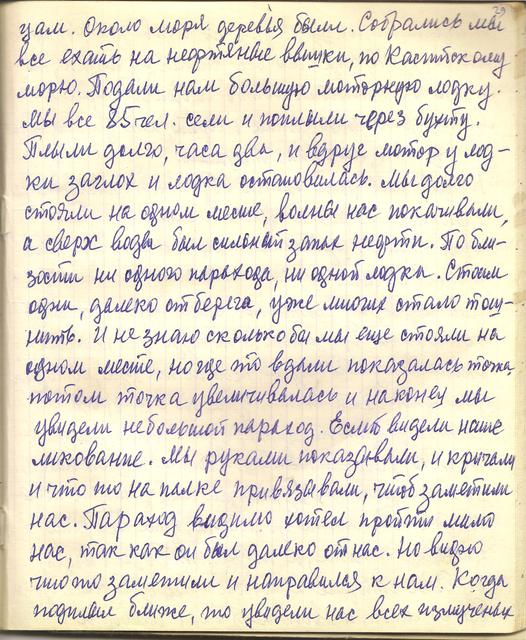 29
цам. Около моря деревья были. Собрались мы
все ехать на нефтяные вышки, по Каспийскому
морю. Подали нам большую моторную лодку.
Мы все 85 чел. сели и поплыли через бухту.
Плыли долго, часа два, и вдруг мотор у лод-
ки заглох и лодка остановилась. Мы долго
стояли на одном месте, волны нас покачивали,
а сверх воды был сильный запах нефти. По бли-
зости ни одного парохода, ни одной лодки. Стоим
одни, далеко от берега, уже многих стало тош-
нить. И не знаю сколько бы мы еще стояли на
одном месте, но где то вдали показалась точка
потом точка увеличивалась и наконец мы
увидели небольшой пароход. Если б видели наше
ликование. Мы руками показывали, и кричали
и что то на палке привязывали, чтоб заметили
нас. Пароход видимо хотел пройти мимо
нас, так как он был далеко от нас. Но видно
что то заметили и направился к нам. Когда
подплыл ближе, то увидели нас всех измученых